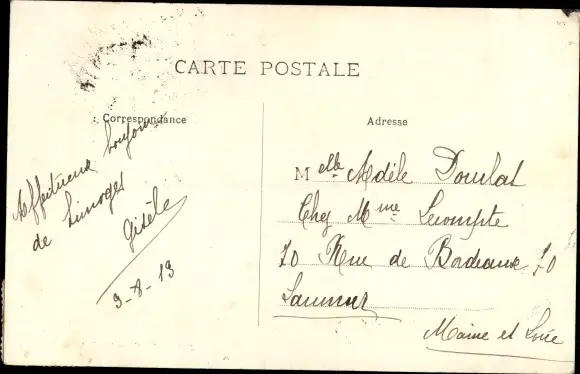 CARTE POSTALE
Correspondance
Affectueux bonjour
de Limoges
Gisèle
9-8-13
Adresse
Melle Adèle Doulat
Chez Mme Lecompte
70 Rue de Bordeaux 70
Saumur
Maine et Loire